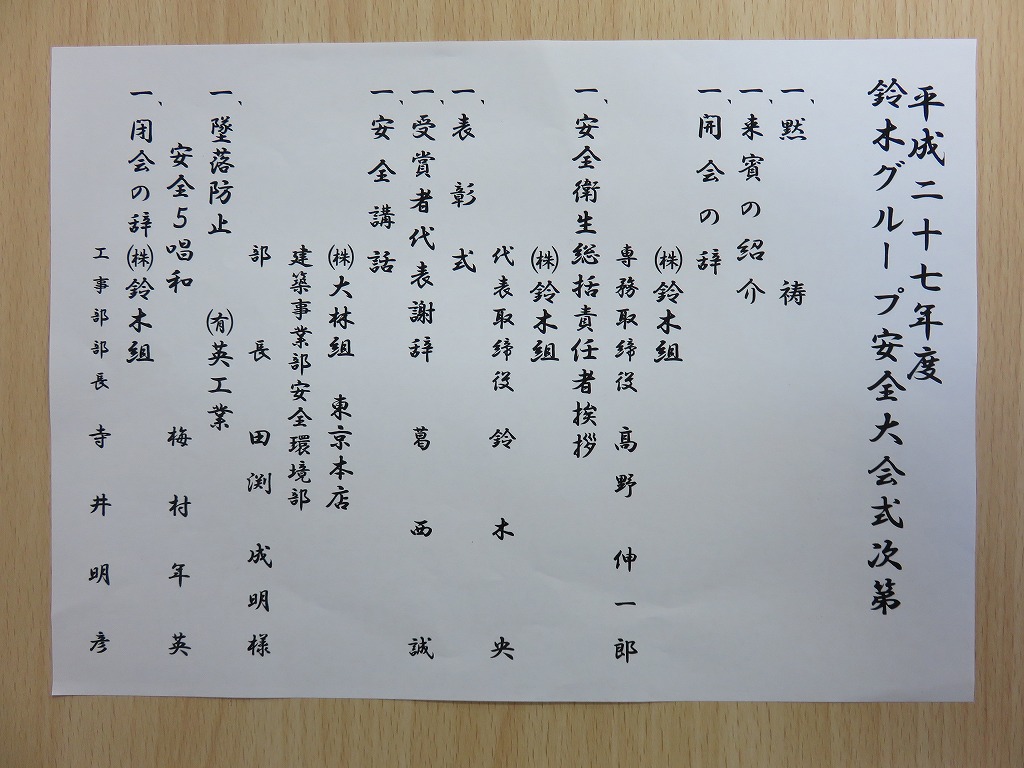 平成二十七年度
鈴木グループ安全大会式次第
一、黙祷
一、来賓の紹介
一、開会の辞
㈱鈴木組
専務取締役 髙野伸一郎
一、安全衛生総括責任者挨拶
㈱鈴木組
代表取締役 鈴木央
一、表彰式
一、受賞者代表謝辞 葛西誠
一、安全講話
㈱大林組 東京本店
建築事業部安全環境部
部長 田渕成明様
一、墜落防止 ㈲英工業
安全5唱和 梅村年英
一、閉会の辞 ㈱鈴木組
工事部部長 寺井明彦